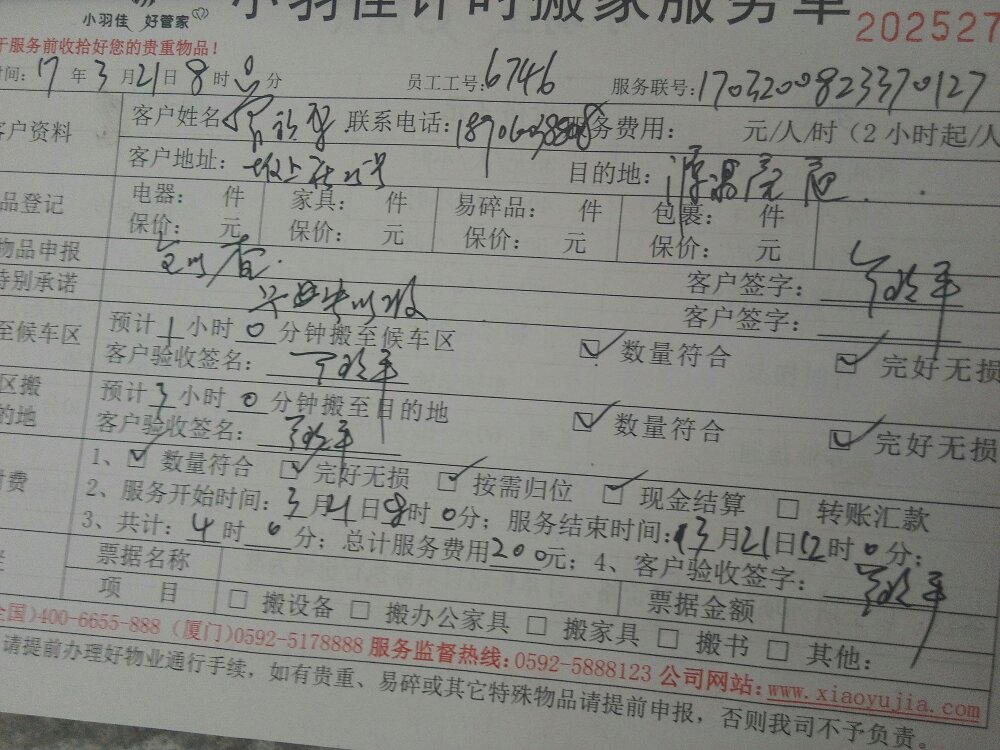 小羽佳 好管家
小羽佳计时搬家服务单
202527
于服务前收拾好您的贵重物品！
时间：17年3月21日8时0分 员工工号：6746 服务联号：1703200823370127
客户资料 客户姓名 联系电话： 服务费用： 元/人/时（2小时起/人
客户地址： 目的地：
品登记 电器： 件 家具： 件 易碎品： 件 包裹： 件
保价： 元 保价： 元 保价： 元 保价： 元
物品申报 客户签字：
特别承诺 客户签字：
至候车区 预计1小时0分钟搬至候车区
客户验收签名： ☑数量符合 ☑完好无损
区搬 预计3小时0分钟搬至目的地
的地 客户验收签名： ☑数量符合 ☑完好无损
付费 1、☑数量符合 ☑完好无损 ☑按需归位 ☑现金结算 □转账汇款
2、服务开始时间：3月21日8时0分；服务结束时间：3月21日12时0分；
3、共计：4时0分；总计服务费用200元；4、客户验收签字：
票据名称 票据金额
项 目 □搬设备 □搬办公家具 □搬家具 □搬书 □其他：
全国)400-6655-888 (厦门)0592-5178888 服务监督热线：0592-5888123 公司网站：www.xiaoyujia.com
请提前办理好物业通行手续，如有贵重、易碎或其它特殊物品请提前申报，否则我司不予负责。